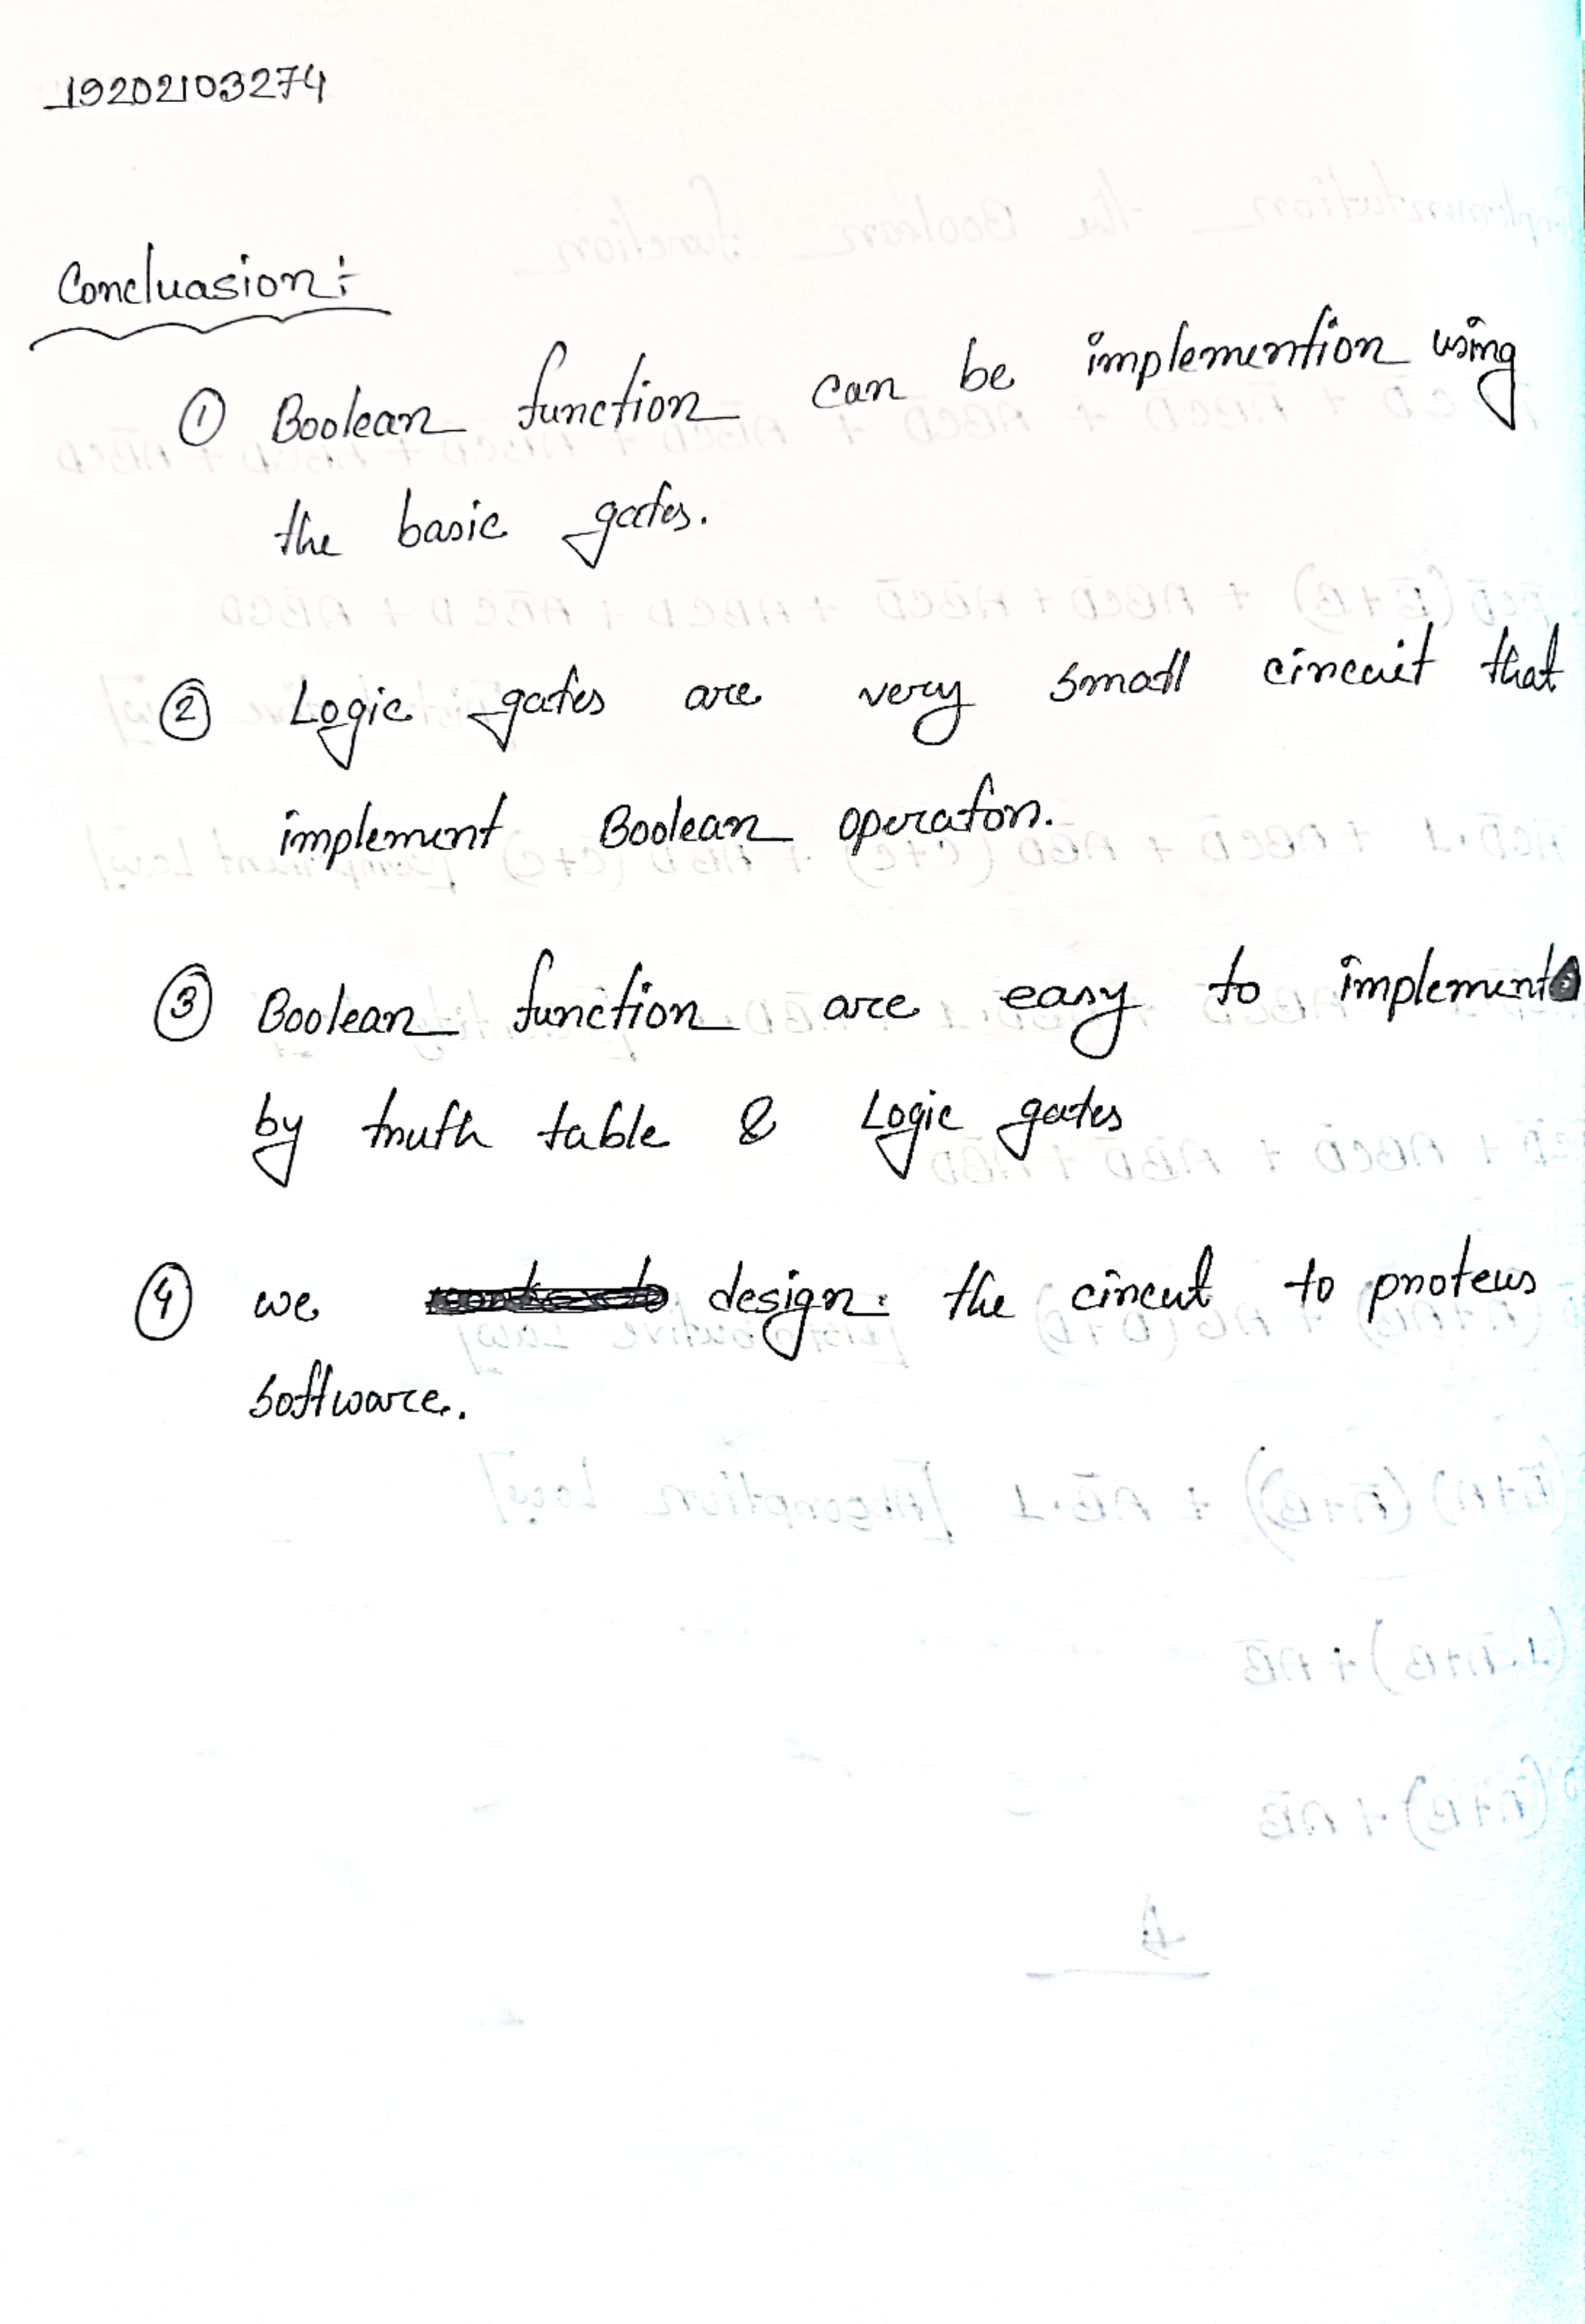 19202103274
Concluasion:
① Boolean function can be implemention using
the basic gates.
② Logic gates are very small circuit that
implement Boolean operator.
③ Boolean function are easy to implement
by truth table & Logic gates
④ we design the circut to proteus
software.